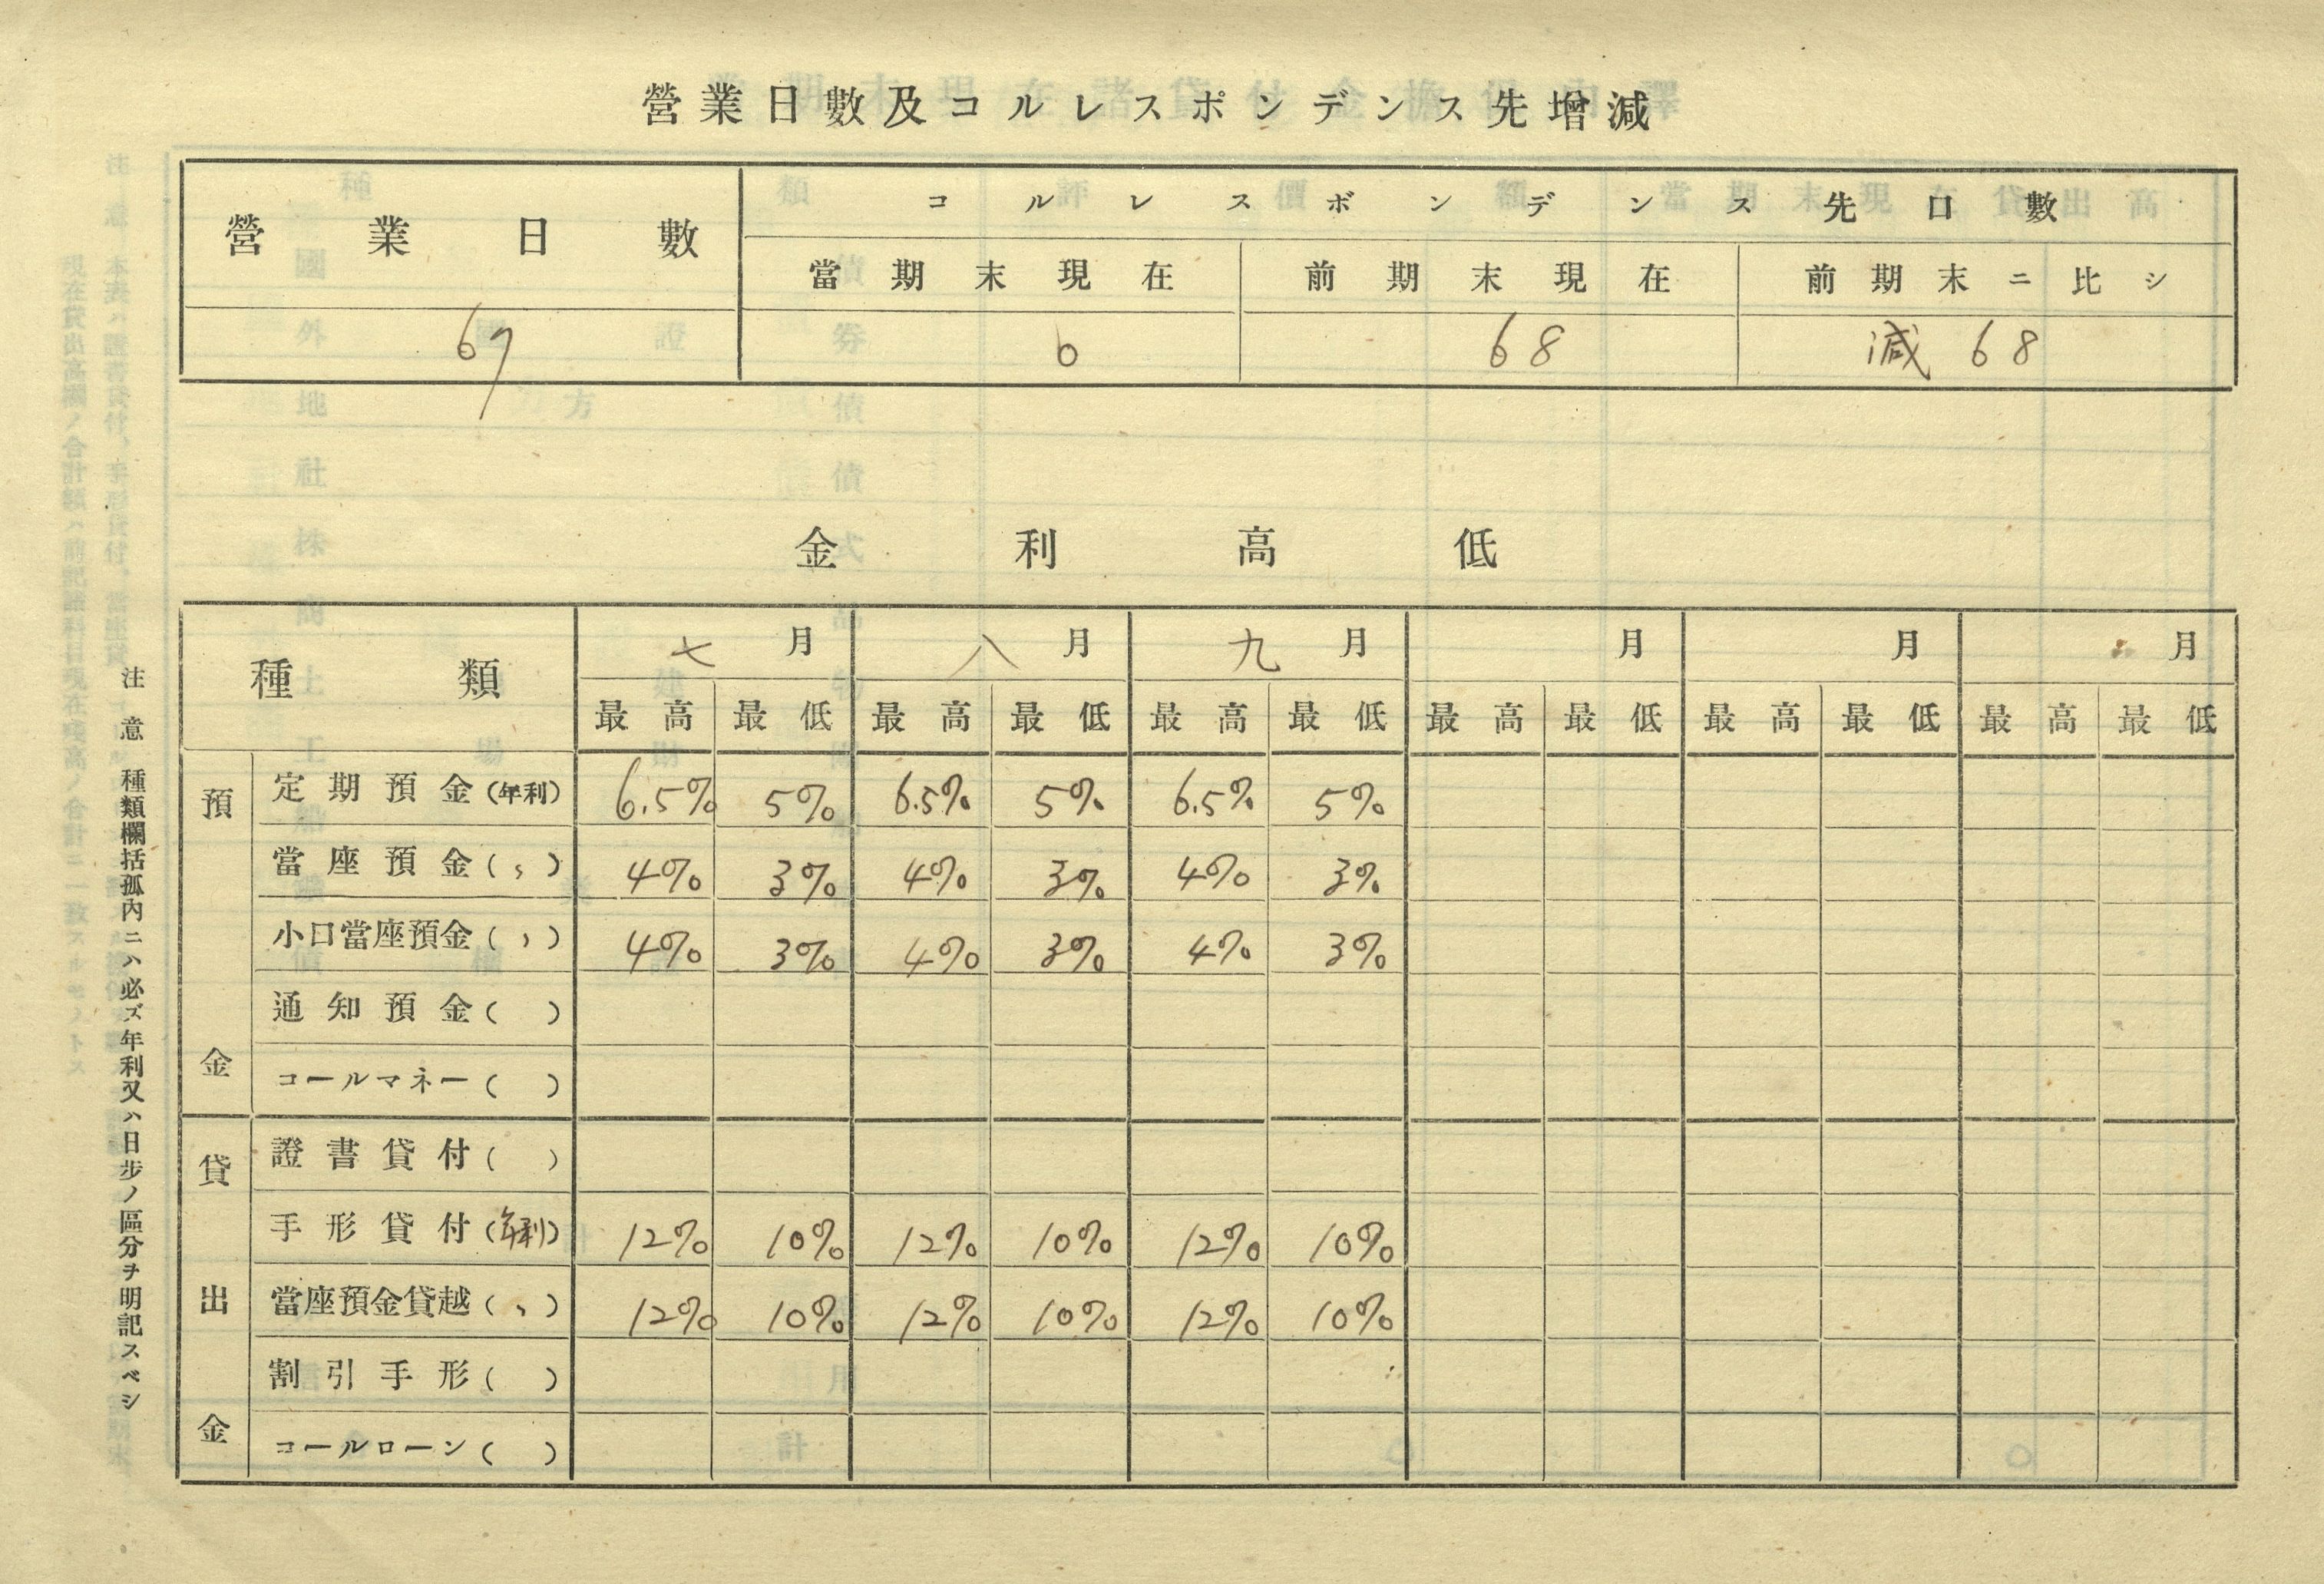 營業日數及コルレスポンデンス先增減
營業日數 コルレスポンデンス先口數
當期末現在 前期末現在 前期末ニ比シ
67 0 68 減 68
金利高低
種類 七月 八月 九月 月 月 月
最高 最低 最高 最低 最高 最低 最高 最低 最高 最低 最高 最低
預金
定期預金(年利) 6.5% 5% 6.5% 5% 6.5% 5%
當座預金(〃) 4% 3% 4% 3% 4% 3%
小口當座預金(〃) 4% 3% 4% 3% 4% 3%
通知預金( )
コールマネー( )
貸出金
證書貸付( )
手形貸付(年利) 12% 10% 12% 10% 12% 10%
當座預金貸越(〃) 12% 10% 12% 10% 12% 10%
割引手形( )
コールローン( )
注意 種類欄括孤內ニハ必ズ年利又ハ日步ノ區分ヲ明記スベシ